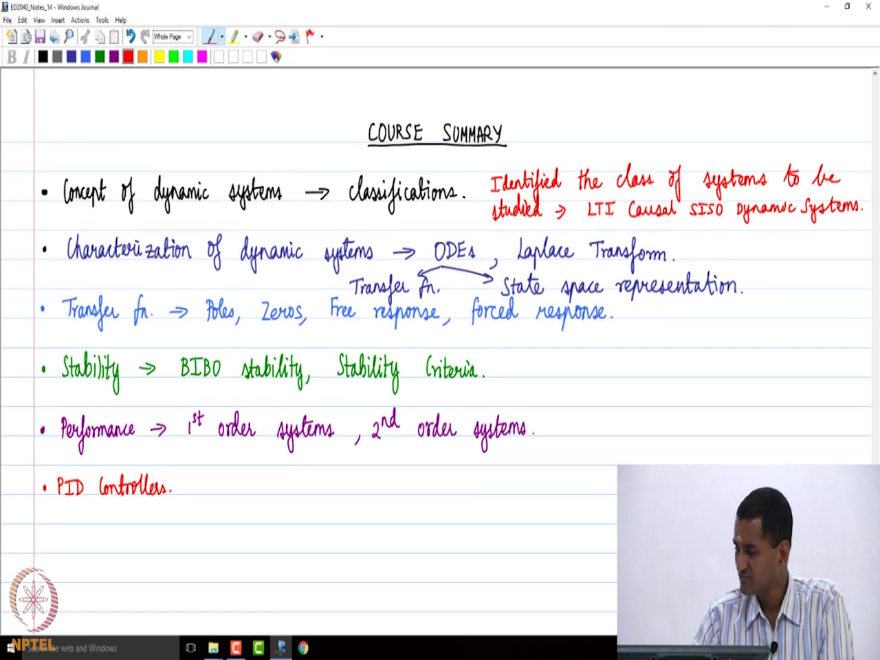 ED2040_Notes_14 - Windows Journal
File Edit View Insert Actions Tools Help
Whole Page
B I
COURSE SUMMARY
• Concept of dynamic systems → classifications. Identified the class of systems to be
studied → LTI Causal SISO Dynamic Systems.
• Characterization of dynamic systems → ODEs, Laplace Transform.
Transfer fn. State space representation.
• Transfer fn. → Poles, Zeros, Free response, forced response.
• Stability → BIBO stability, Stability Criteria.
• Performance → 1st order systems, 2nd order systems.
• PID Controllers.
NPTEL
the web and Windows